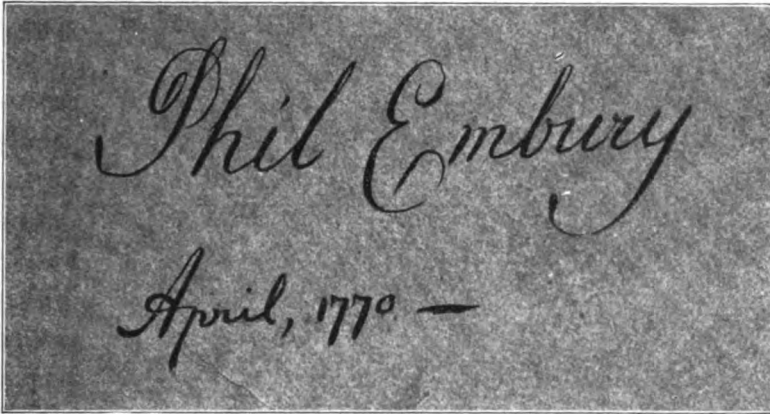 Phil Embury
April, 1770 —